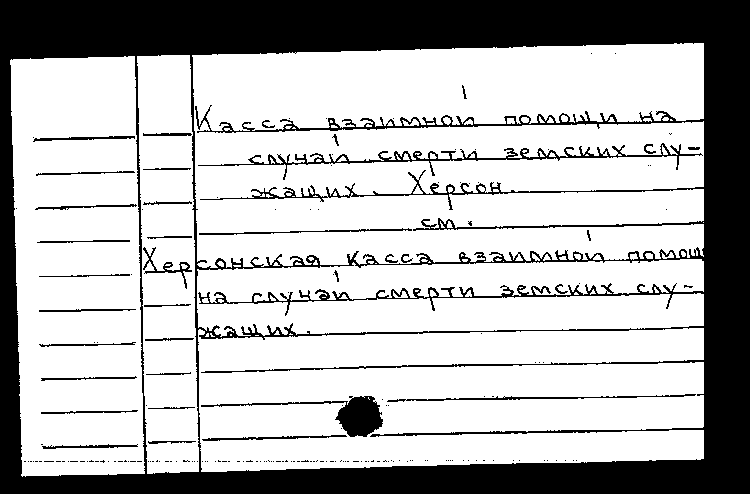 Касса взаимной помощи на
случай смерти земских слу-
жащих. Херсон.
см.
Херсонская касса взаимной помощи
на случай смерти земских слу-
жащих.